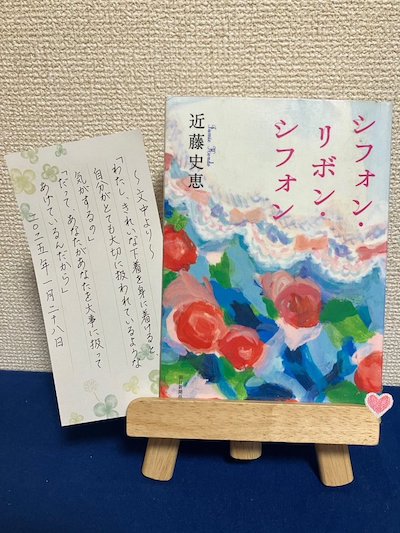 シフォン・
リボン・
シフォン
近藤史恵
Fumie Kondo
〜文中より〜
「わたし、きれいな下着を身に着けると、
自分がとても大切に扱われているような
気がするの」
「だって、あなたがあなたを大事に扱って
あげているんだから」
二〇二五年 一月二十八日